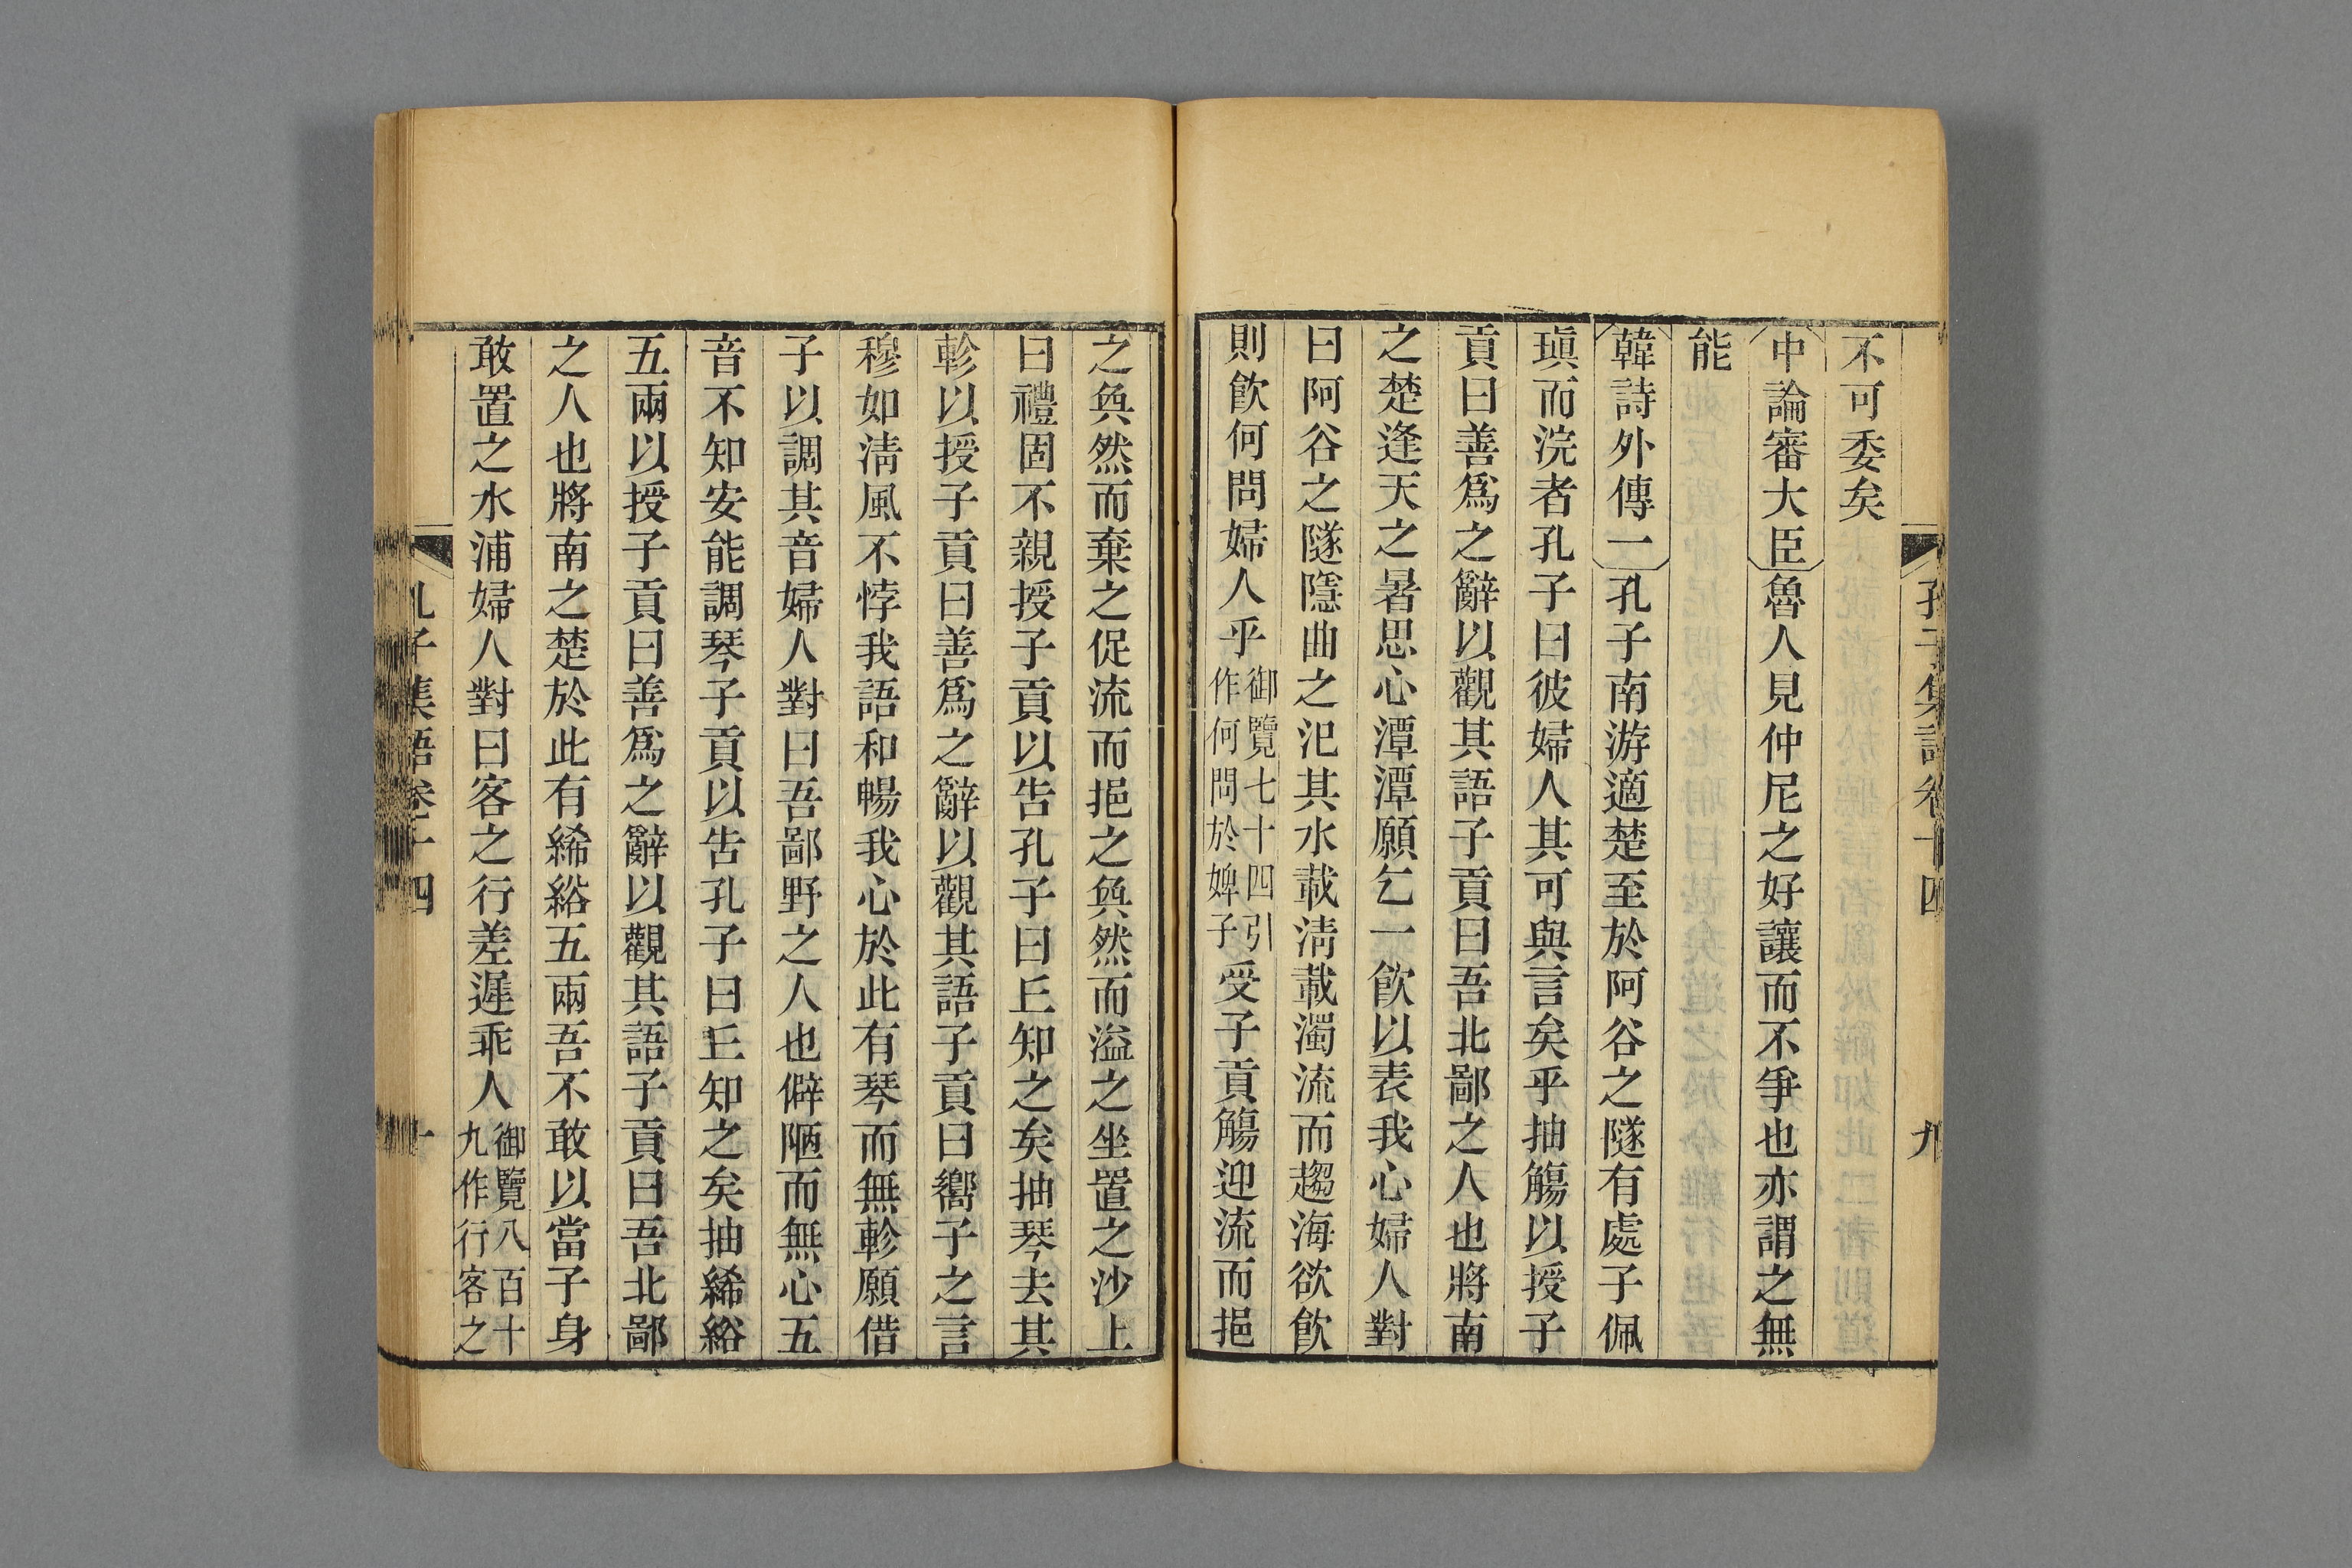 孔子集語卷十四　九
不可委矣
中論審大臣魯人見仲尼之好讓而不爭也亦謂之無
能
韓詩外傳一孔子南游適楚至於阿谷之隧有處子佩
瑱而浣者孔子曰彼婦人其可與言矣乎抽觴以授子
貢曰善爲之辭以觀其語子貢曰吾北鄙之人也將南
之楚逢天之暑思心潭潭願乞一飮以表我心婦人對
曰阿谷之隧隱曲之汜其水載淸載濁流而趨海欲飮
則飮何問婦人乎御覽七十四引作何問於婢子受子貢觴迎流而挹
之奐然而棄之促流而挹之奐然而溢之坐置之沙上
曰禮固不親授子貢以告孔子曰丘知之矣抽琴去其
軫以授子貢曰善爲之辭以觀其語子貢曰嚮子之言
穆如淸風不悖我語和暢我心於此有琴而無軫願借
子以調其音婦人對曰吾鄙野之人也僻陋而無心五
音不知安能調琴子貢以告孔子曰丘知之矣抽絺綌
五兩以授子貢曰善爲之辭以觀其語子貢曰吾北鄙
之人也將南之楚於此有絺綌五兩吾不敢以當子身
敢置之水浦婦人對曰客之行差遲乖人御覽八百十九作行客之
孔子集語卷十四　十